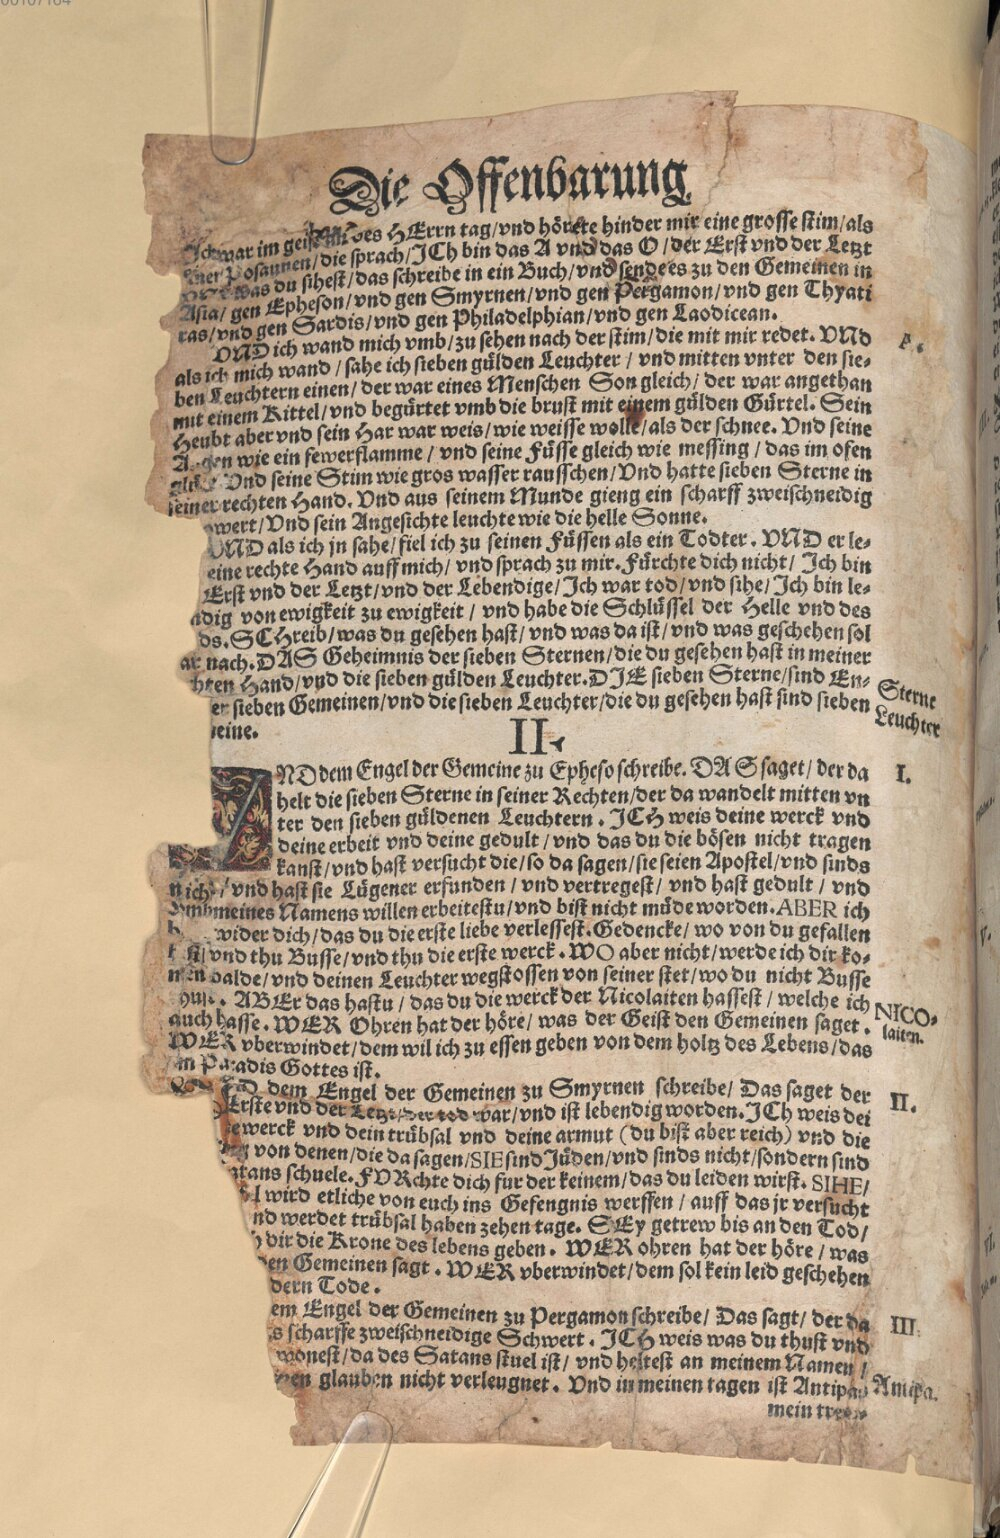 Die Offenbarung
Ich war im geist des HErrn tag/vnd hörete hinder mir eine grosse stim/als
einer Posaunen/die sprach/ICh bin das A vnd das O/der Erst vnd der Letzt
was du sihest/das schreibe in ein Buch/vnd sende es zu den Gemeinen in
Asia/gen Epheson/vnd gen Smyrnen/vnd gen Pergamon/vnd gen Thyati
ras/vnd gen Sardis/vnd gen Philadelphian/vnd gen Laodicean.
VND ich wand mich vmb/zu sehen nach der stim/die mit mir redet. VNd
als ich mich wand/sahe ich sieben gülden Leuchter/vnd mitten vnter den sie-
ben Leuchtern einen/der war eines Menschen Son gleich/der war angethan
mit einem Kittel/vnd begürtet vmb die brust mit einem gülden Gürtel. Sein
Heubt aber vnd sein Har war weis/wie weisse wolle/als der schnee. Vnd seine
Augen wie ein fewerflamme/vnd seine Füsse gleich wie messing/das im ofen
Vnd seine Stim wie gros wasser rausschen/Vnd hatte sieben Sterne in
seiner rechten Hand. Vnd aus seinem Munde gieng ein scharff zweischneidig
wert/Vnd sein Angesichte leuchte wie die helle Sonne.
VND als ich jn sahe/fiel ich zu seinen Füssen als ein Todter. VND er le-
eine rechte Hand auff mich/vnd sprach zu mir. Fürchte dich nicht/Ich bin
Erst vnd der Letzt/vnd der Lebendige/Ich war tod/vnd sihe/Ich bin le-
ndig von ewigkeit zu ewigkeit/vnd habe die Schlüssel der Helle vnd des
ds. SCHreib/was du gesehen hast/vnd was da ist/vnd was geschehen sol
ar nach. DAS Geheimnis der sieben Sternen/die du gesehen hast in meiner
chten Hand/vnd die sieben gülden Leuchter. DIE sieben Sterne/sind En-
er sieben Gemeinen/vnd die sieben Leuchter/die du gesehen hast sind sieben
eine.
Sterne
Leuchter
II.
I.
VND dem Engel der Gemeine zu Epheso schreibe. DAS saget/der da
helt die sieben Sterne in seiner Rechten/der da wandelt mitten vn
ter den sieben güldenen Leuchtern. ICH weis deine werck vnd
deine erbeit vnd deine gedult/vnd das du die bösen nicht tragen
kanst/vnd hast versucht die/so da sagen/sie seien Apostel/vnd sinds
nicht/vnd hast sie Lügener erfunden/vnd vertregest/vnd hast gedult/vnd
vmb meines Namens willen erbeitestu/vnd bist nicht müde worden. ABER ich
wider dich/das du die erste liebe verlessest. Gedencke/wo von du gefallen
vnd thu Busse/vnd thu die erste werck. WO aber nicht/werde ich dir ko-
men balde/vnd deinen Leuchter wegstossen von seiner stet/wo du nicht Busse
thust. ABEr das hastu/das du die werck der Nicolaiten hassest/welche ich
auch hasse. WER Ohren hat der höre/was der Geist den Gemeinen saget.
WER vberwindet/dem wil ich zu essen geben von dem holtz des Lebens/das
im Paradis Gottes ist.
NICO-
laiten.
II.
VND dem Engel der Gemeinen zu Smyrnen schreibe/Das saget der
Erste vnd der Letzt/der tod war/vnd ist lebendig worden. ICh weis dei
ne werck vnd dein trübsal vnd deine armut (du bist aber reich) vnd die
von denen/die da sagen/SIE sind Jüden/vnd sinds nicht/sondern sind
atans schuele. FVRchte dich fur der keinem/das du leiden wirst. SIHE/
wird etliche von euch ins Gefengnis werffen/auff das jr versucht
nd werdet trübsal haben zehen tage. SEy getrew bis an den Tod/
dir die Krone des lebens geben. WER ohren hat der höre/was
den Gemeinen sagt. WER vberwindet/dem sol kein leid geschehen
dern Tode.
em Engel der Gemeinen zu Pergamon schreibe/Das sagt/der da
s scharffe zweischneidige Schwert. ICH weis was du thust vnd
wonest/da des Satans stuel ist/vnd heltest an meinem Namen/
nen glauben nicht verleugnet. Vnd in meinen tagen ist Antipas
mein trew
III.
Antipa.